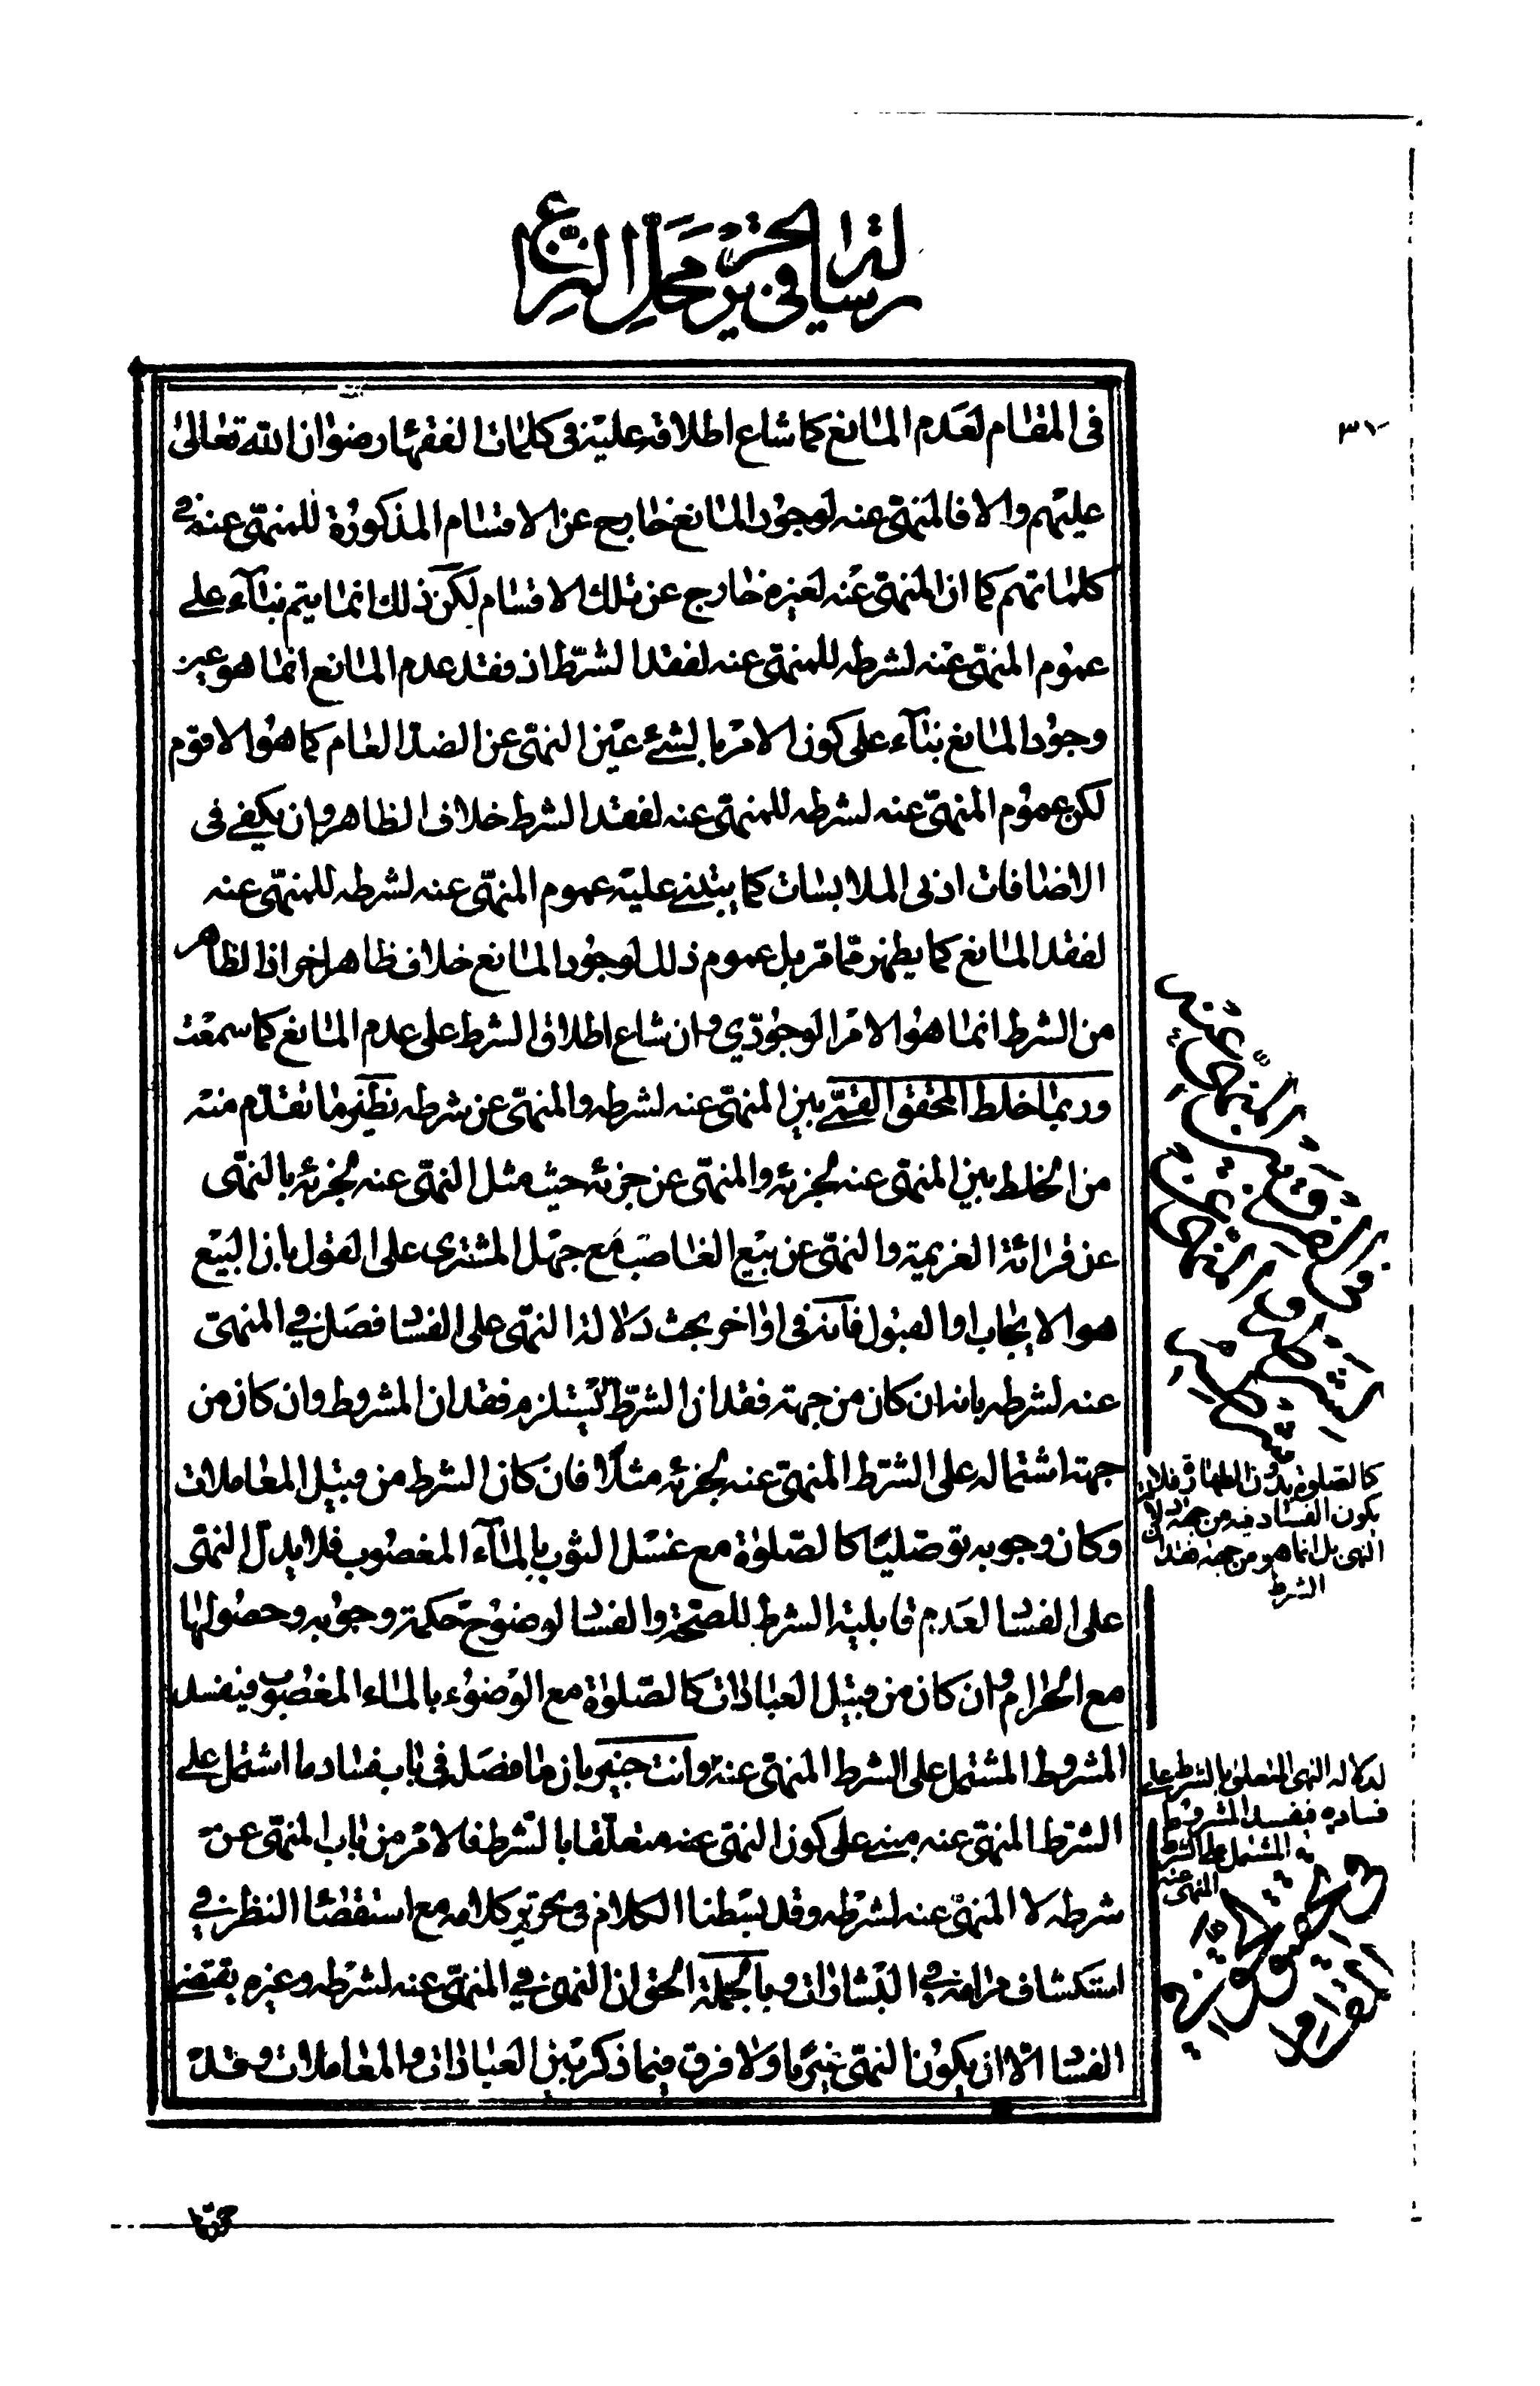 رسالة في تحرير محل النزاع
٣١٠
في المقام لعدم المانع كما شاع اطلاقه عليه في كلمات الفقهاء رضوان الله تعالى
عليهم والا فالمنهيّ عنه لوجود المانع خارج عن الاقسام المذكورة للمنهيّ عنه في
كلماتهم كما ان المنهيّ عنه لغيره خارج عن تلك الاقسام لكن ذلك انما يتم بناء على
عموم المنهيّ عنه لشرطه للمنهيّ عنه لفقد الشرط اذ فقد عدم المانع انما هو عين
وجود المانع بناء على كون الامر بالشئ عين النهي عن الضدّ العام كما هو الاقوم
لكن عموم المنهيّ عنه لشرطه للمنهيّ عنه لفقد الشرط خلاف الظاهر وان يكفي في
الاضافات ادنى الملابسات كما يبتني عليه عموم المنهيّ عنه لشرطه للمنهيّ عنه
لفقد المانع كما يظهر ممّا مرّ بل عموم ذلك لوجود المانع خلاف ظاهر اخر اذ الظاهر
من الشرط انما هو الامر الوجوديّ وان شاع اطلاق الشرط على عدم المانع كما سمعت
وربما خلط المحقق القمّي بين المنهيّ عنه لشرطه والمنهيّ عن شرطه نظير ما تقدّم منه
من الخلط بين المنهيّ عنه لجزئه والمنهيّ عن جزئه حيث مثل النهي عنه لجزئه بالنهي
عن قرائة العزيمة والنهي عن بيع الغاصب مع جهل المشتري على القول بان البيع
هو الايجاب والقبول فانه في اواخر بحث دلالة النهي على الفساد فصّل في المنهيّ
عنه لشرطه بانه ان كان من جهة فقدان الشرط فيستلزم فقدان المشروط وان كان من
جهة اشتماله على الشرط المنهيّ عنه لجزئه مثلا فان كان الشرط من قبيل المعاملات
وكان وجوبه توصّليّا كالصّلوة مع غسل الثوب بالماء المغصوب فلا يدلّ النهي
على الفساد لعدم قابلية الشرط للصحّة والفساد لوضوح حكمة وجوبه وحصولها
مع الحرام وان كان من قبيل العبادات كالصّلوة مع الوضوء بالماء المغصوب فيفسد
المشروط المشتمل على الشرط المنهيّ عنه وانت خبير بان ما فصّل في باب فساد ما اشتمل على
الشرط المنهيّ عنه مبني على كون النهي عنه متعلّقا بالشرط فالامر من باب المنهيّ عن
شرطه لا المنهيّ عنه لشرطه وقد بسطنا الكلام في تحرير كلامه مع استقصاء النظر في
استكشاف مرامه في البشارات وبالجملة الحق ان النهي في المنهيّ عنه لشرطه وغيره يقتضي
الفساد الا ان يكون النهي غيريّا ولا فرق فيما ذكر بين العبادات والمعاملات وقد
كالصّلوة بدون الطهارة فلا
يكون الفساد فيه من جهة دلالة
النهي بل انما هو من جهة فقدان
الشرط
لدلالة النهي المتعلق بالشرط على
فساده فيفسد المشروط
المشتمل على الشرط
المنهيّ عنه